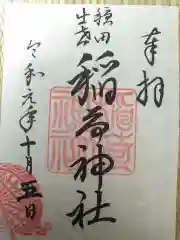 奉拝
穂田
出世
稲荷神社
令和元年十月五日